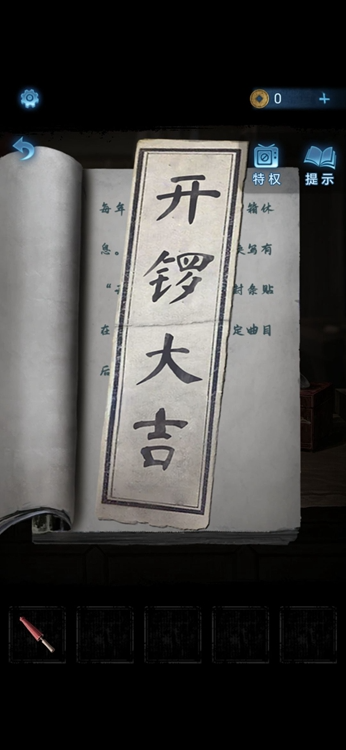 0
特权
提示
开锣大吉
每年
箱休
息。
写有
封条贴
在
定曲目
后